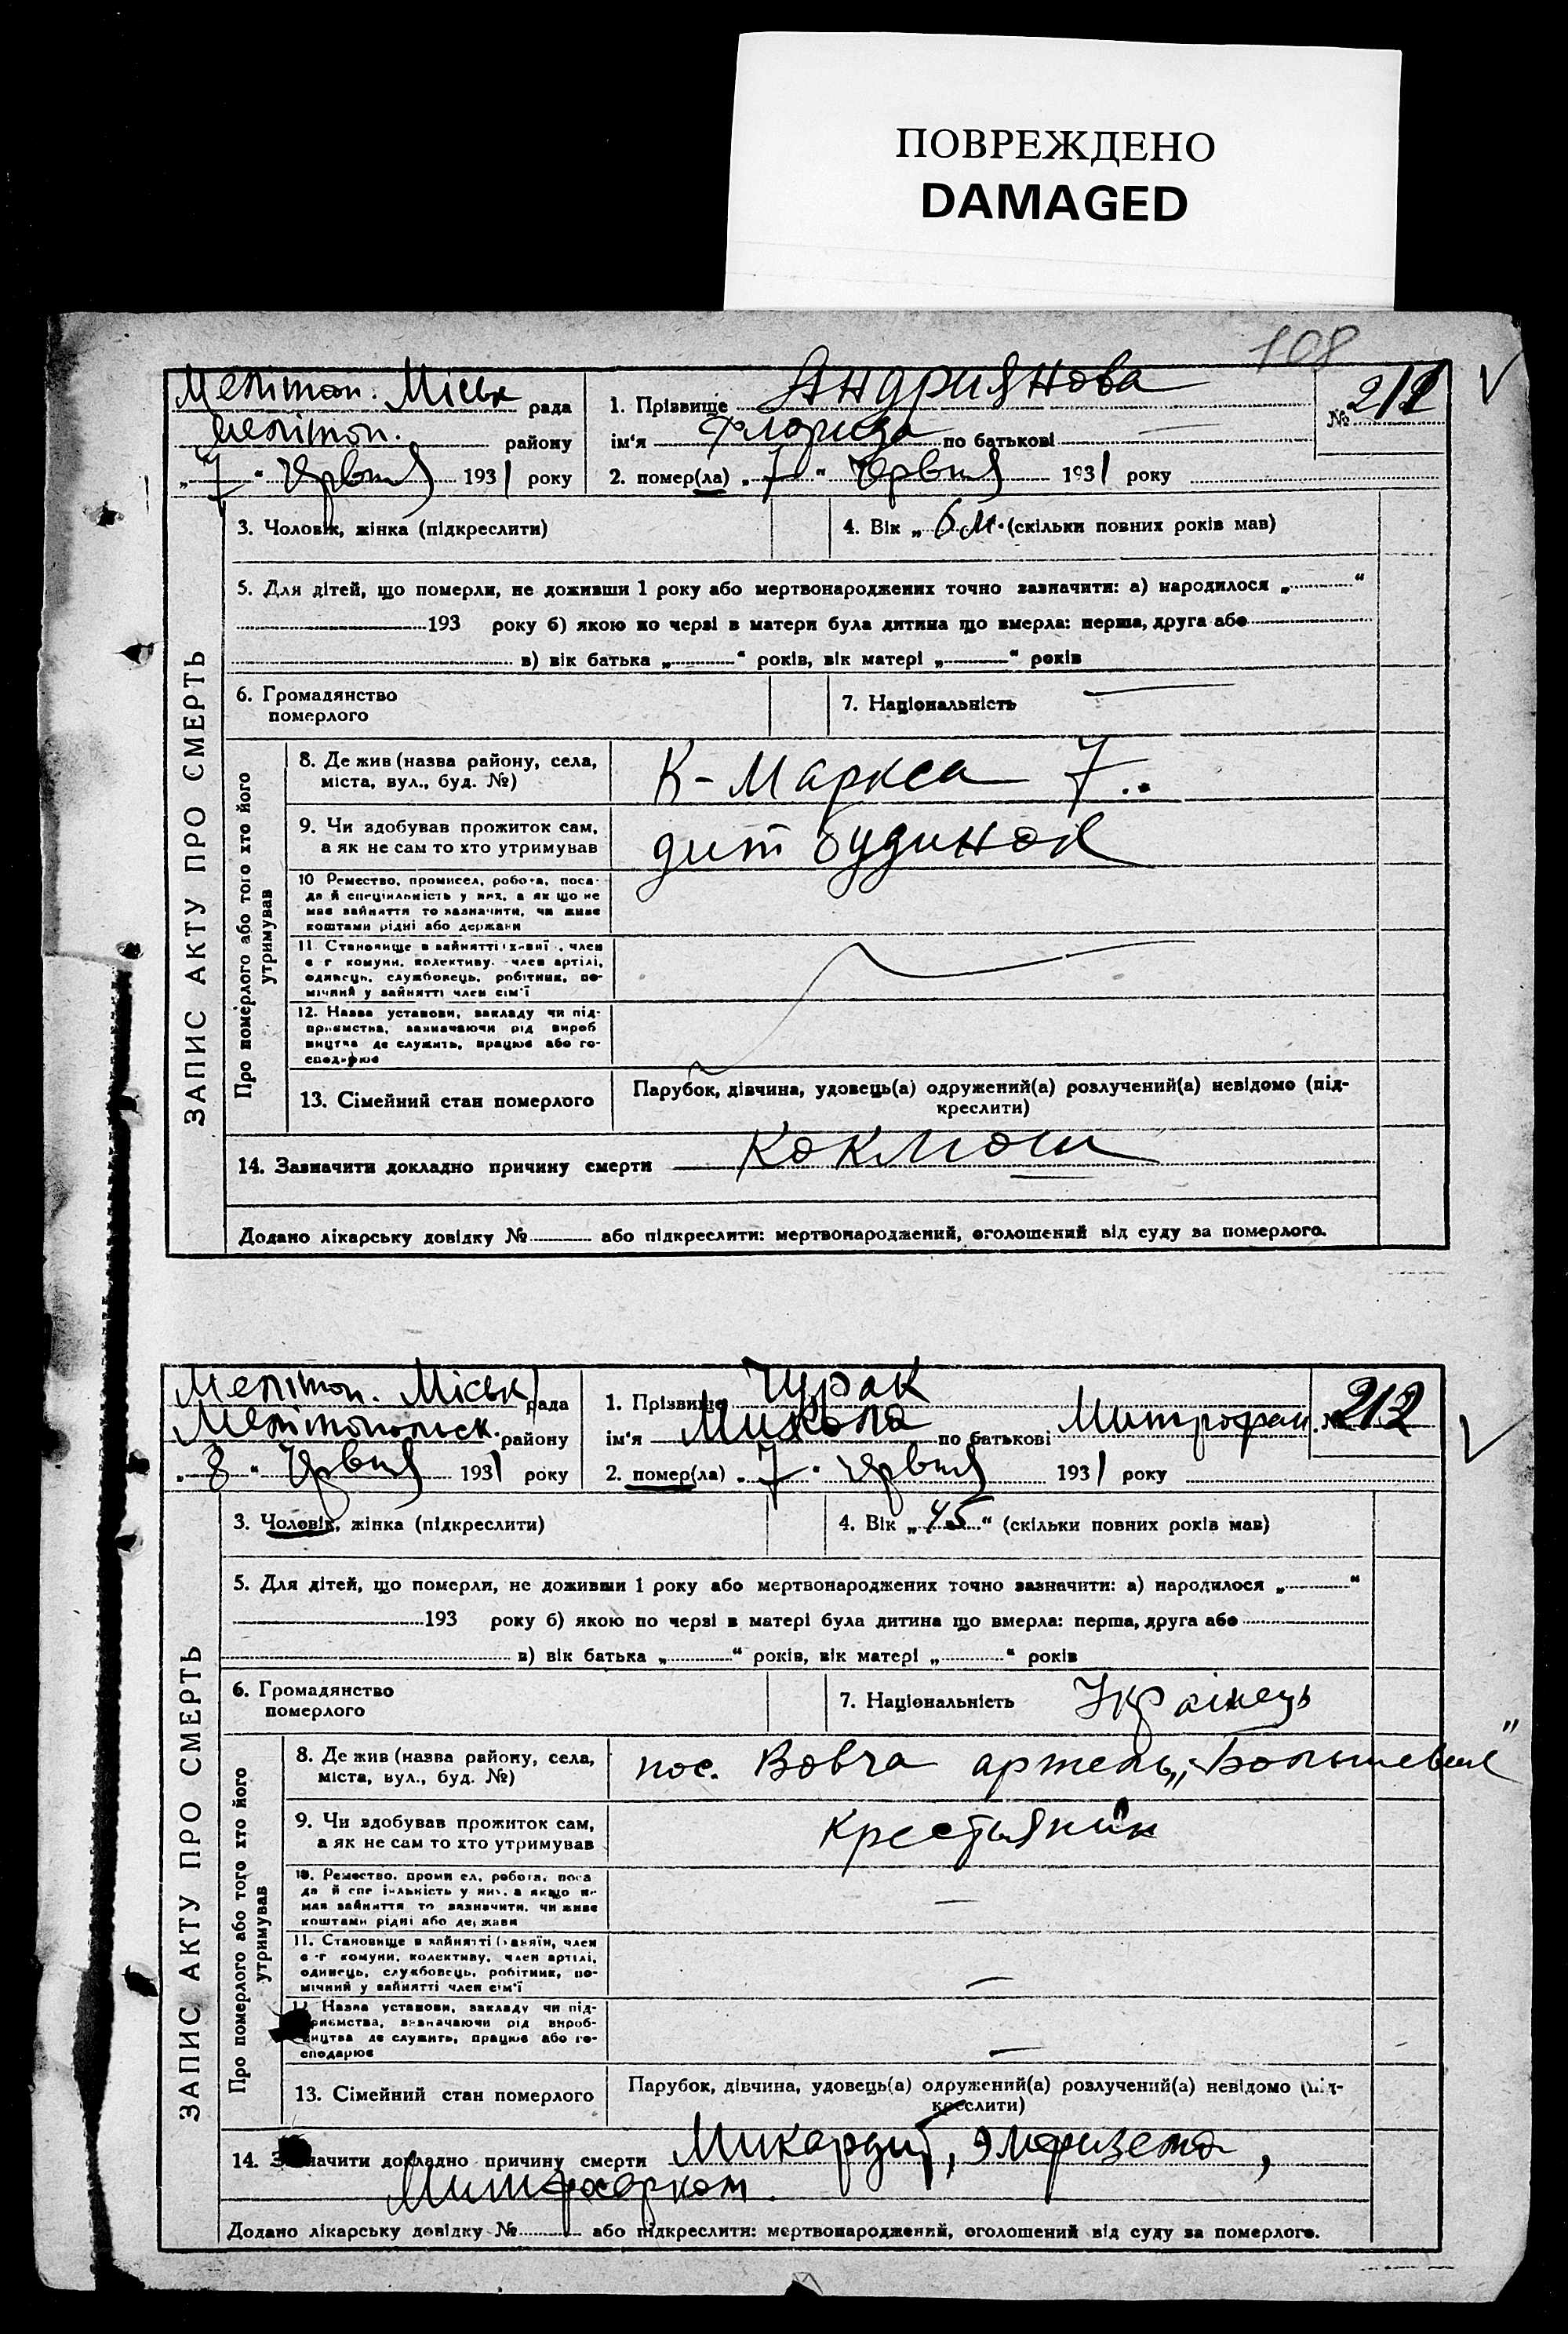 ПОВРЕЖДЕНО
DAMAGED
108
Мелітоп. Міськ рада
Мелітоп. району
„ 7 “ Червня 1931 року
1. Прізвище Андриянова
ім'я Флорида по батькові —
2. помер(ла) „ 7 “ Червня 1931 року
№ 211
ЗАПИС АКТУ ПРО СМЕРТЬ
3. Чоловік, жінка (підкреслити)
4. Вік „ 6 м. (скільки повних років мав)
5. Для дітей, що померли, не доживши 1 року або мертвонароджених точно зазначити: а) народилося „ “
193 року б) якою по черзі в матери була дитина що вмерла: перша, друга або
в) вік батька „ “ років, вік матері „ “ років
6. Громадянство
померлого
7. Національність —
Про померлого або того хто його
утримував
8. Де жив (назва району, села,
міста, вул., буд. №)
К-Маркса 7..
9. Чи здобував прожиток сам,
а як не сам то хто утримував
дит будинок
10 Ремество, промисел, робота, поса-
да й спеціяльність у них, а як що не
має зайняття то зазначити, чи живе
коштами рідні або держави
11. Становище в зайнятті член
с г комуни, колективу, член артілі,
одинець, службовець, робітник, по-
мічний у зайнятті член сім'ї
12. Назва установи, закладу чи під-
приємства, зазначаючи рід вироб
ництва де служить, працює або го-
сподарює
13. Сімейний стан померлого
Парубок, дівчина, удовець(а) одружений(а) розлучений(а) невідомо (під-
креслити)
14. Зазначити докладно причину смерти Коклюш
Додано лікарську довідку № або підкреслити: мертвонароджений, оголошений від суду за померлого.
Мелітоп. Міськ рада
Мелітопольск. району
„ 8 “ Червня 1931 року
1. Прізвище Чурак
ім'я Микола по батькові Митрофан.
2. помер(ла) „ 7 “ червня 1931 року
№ 212
ЗАПИС АКТУ ПРО СМЕРТЬ
3. Чоловік, жінка (підкреслити)
4. Вік „ 45 “ (скільки повних років мав)
5. Для дітей, що померли, не доживши 1 року або мертвонароджених точно зазначити: а) народилося „ “
193 року б) якою по черзі в матері була дитина що вмерла: перша, друга або
в) вік батька „ “ років, вік матері „ “ років
6. Громадянство
померлого
7. Національність Українець
Про померлого або того хто його
утримував
8. Де жив (назва району, села,
міста, вул., буд. №)
пос. Вовча артель „Большевик“
9. Чи здобував прожиток сам,
а як не сам то хто утримував
крестьянин
10. Ремество, проми ел, робота, поса
да й спе іяльність у них, а якщо не
має зайняття то зазначити, чи живе
коштами рідні або держави
—
11. Становище в зайнятті член
с-г комуни, колективу, член артілі,
одинець, службовець, робітник, по-
мічний у зайнятті член сім'ї
—
Назва установи, закладу чи під-
риємства, зазначаючи рід вироб-
ництва де служить, працює або го-
сподарює
—
13. Сімейний стан померлого
Парубок, дівчина, удовець(а) одружений(а) розлучений(а) невідомо (під-
креслити)
14. Зазначити докладно причину смерти Микардит, Эмфизема,
Додано лікарську довідку № або підкреслити: мертвонароджений, оголошений від суду за померлого.